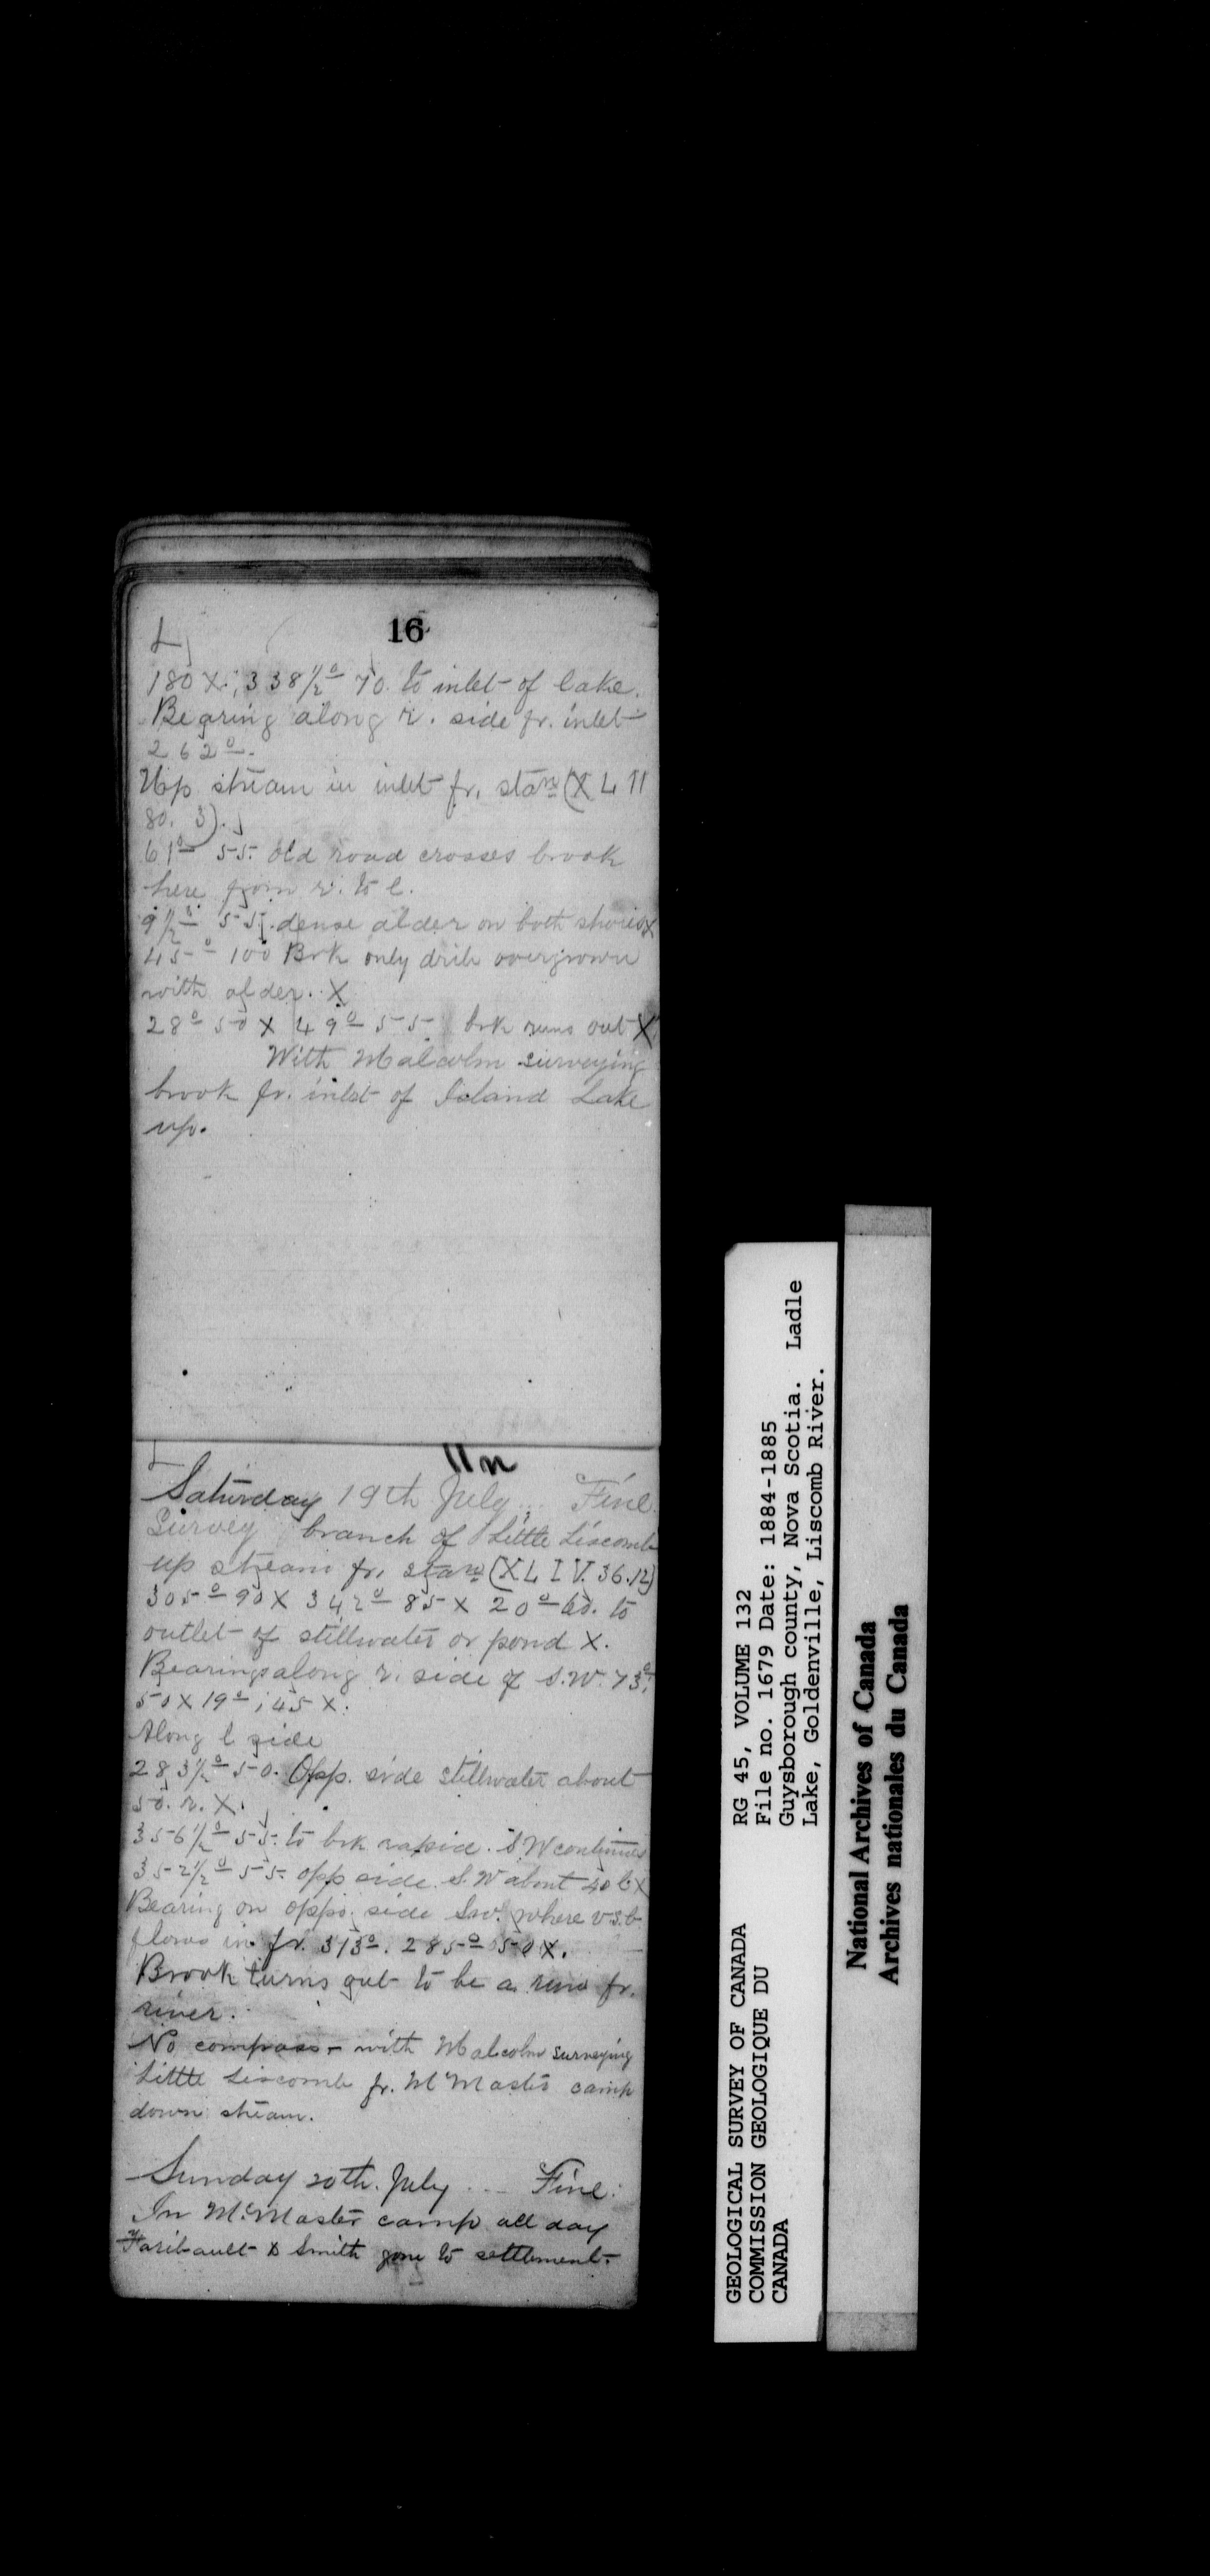 16
L
180 X.; 338½° 70. to inlet of lake.
Bearing along r. side fr. inlet
262°.
Up stream in inlet fr. sta<u>n</u> (XLII
80. 3).
61° 55. old road crosses brook
here from r. to l.
9½° 55. dense alder on both shores X
45° 100 Brk only drib overgrown
with alder. X
28° 50 X 49° 55 brk runs out X
With Malcolm surveying
brook fr. inlet of Island Lake
up.
11n
Saturday 19th July... Fine.
Survey branch of Little Liscomb
up stream fr. sta<u>n</u> (XLIV. 36.12)
305° 90 X 342° 85 X 20° 60. to
outlet of stillwater or pond X.
Bearings along r. side of S.W. 73°;
50 X 19°; 45 X.
Along l side
283½° 50. Opp. side stillwater about
50. r. X.
356½° 55. to brk rapid. S.W continues
352½° 55. opp side. S.W about 40 l. X
Bearing on oppo. side Sw. where v.s.b.
flows in fr. 313°. 285° 50 X.
Brook turns out to be a run fr.
river.
No compass - with Malcolm surveying
Little Liscomb fr. McMaster camp
down stream.
Sunday 20th. July ... Fine.
In McMaster camp all day
Faribault & Smith gone to settlement.
GEOLOGICAL SURVEY OF CANADA
COMMISSION GEOLOGIQUE DU
CANADA
RG 45, VOLUME 132
File no. 1679 Date: 1884-1885
Guysborough county, Nova Scotia. Ladle
Lake, Goldenville, Liscomb River.
National Archives of Canada
Archives nationales du Canada